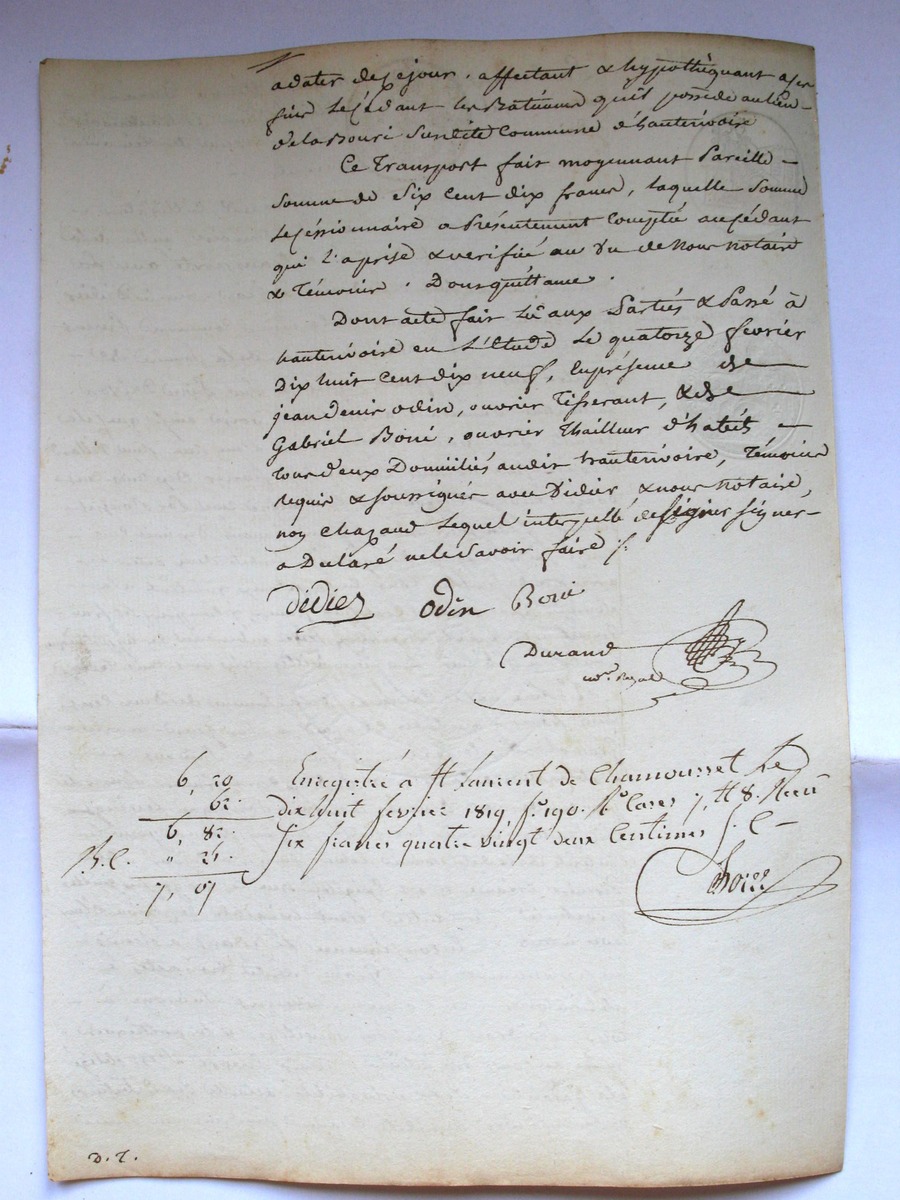 a dater de ce jour, affectant & hypothéquant a ces
fins le cédant les Batiments quil possede au lieu
de la Bouri sur dite Commune d'hauterivoire
Ce Transport fait moyennant Pareille
Somme de Six cent dix francs, laquelle Somme
le cessionnaire a Présentement Comptée au cédant
qui l'a prise & verifiée au Vu de Nous Notaire
& Témoins. Dont quittance.
Dont acte fait Lû aux Parties & Passé à
hauterivoire en L'Etude le quatorze fevrier
Dix huit cent dix neuf, En présence de
jean denis odin, ouvrier Tisserant, & de
Gabriel Boni, ouvrier Thailleur d'habits
tous deux Domiciliés audit hauterivoire, Témoins
requis & soussignés avec Didier & nous Notaire,
non Chapaud lequel interpellé de signer signer
a Déclaré ne le Savoir faire ./.
dédier odin Boni
Durand
not.re Royal
Enregistré a St Laurent de Chamousset Le
dix huit fevrier 1819, f.o 190. R.o Cases 7, et 8. Recu
Six francs quatre Vingt deux Centimes S. C
6, 20
62.
6, 82.
S. C. " 25.
7, 07
D. T.